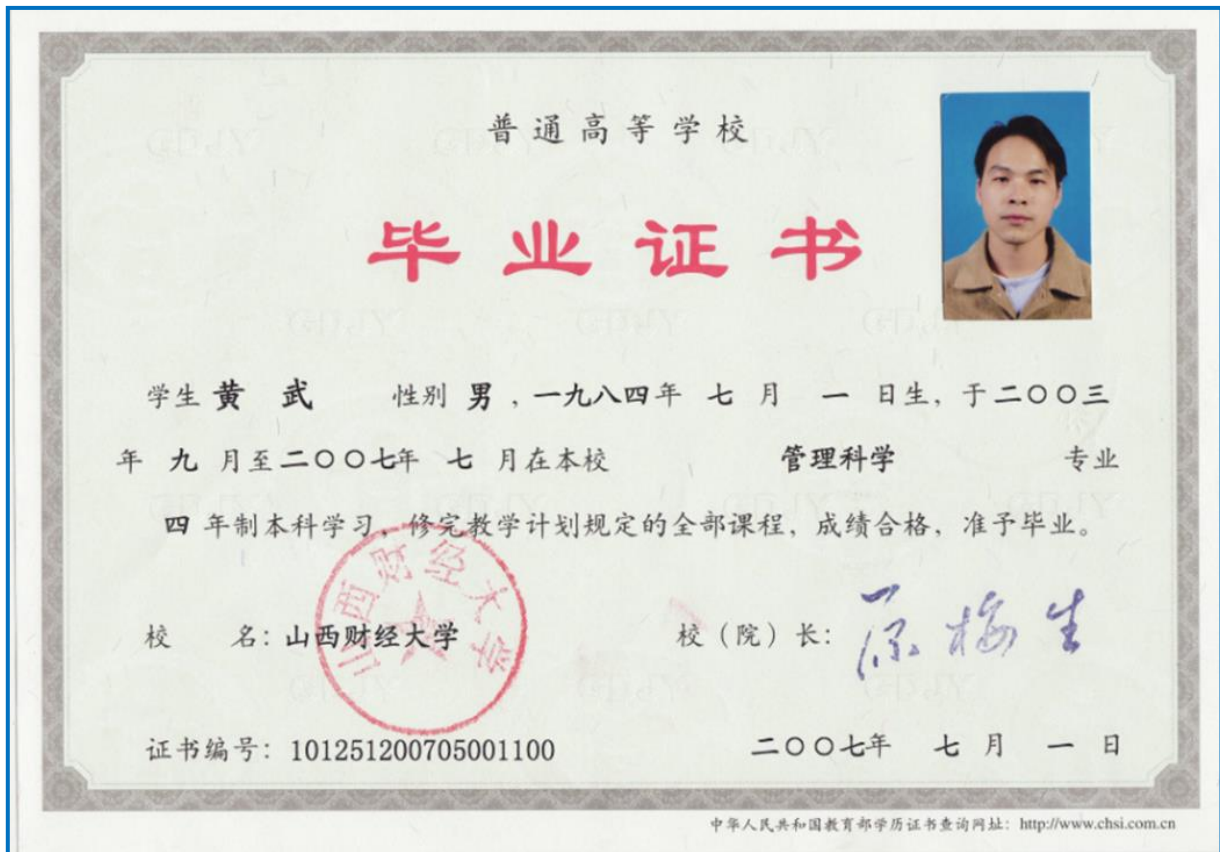 普通高等学校
毕业证书
学生 黄 武 性别 男 ,一九八四年 七 月 一 日生, 于二〇〇三
年 九 月至二〇〇七年 七 月在本校 管理科学 专业
四 年制本科学习, 修完教学计划规定的全部课程, 成绩合格, 准予毕业。
山西财经大学
校 名: 山西财经大学 校（院）长: 原梅生
证书编号: 101251200705001100 二〇〇七年 七 月 一 日
中华人民共和国教育部学历证书查询网址: http://www.chsi.com.cn